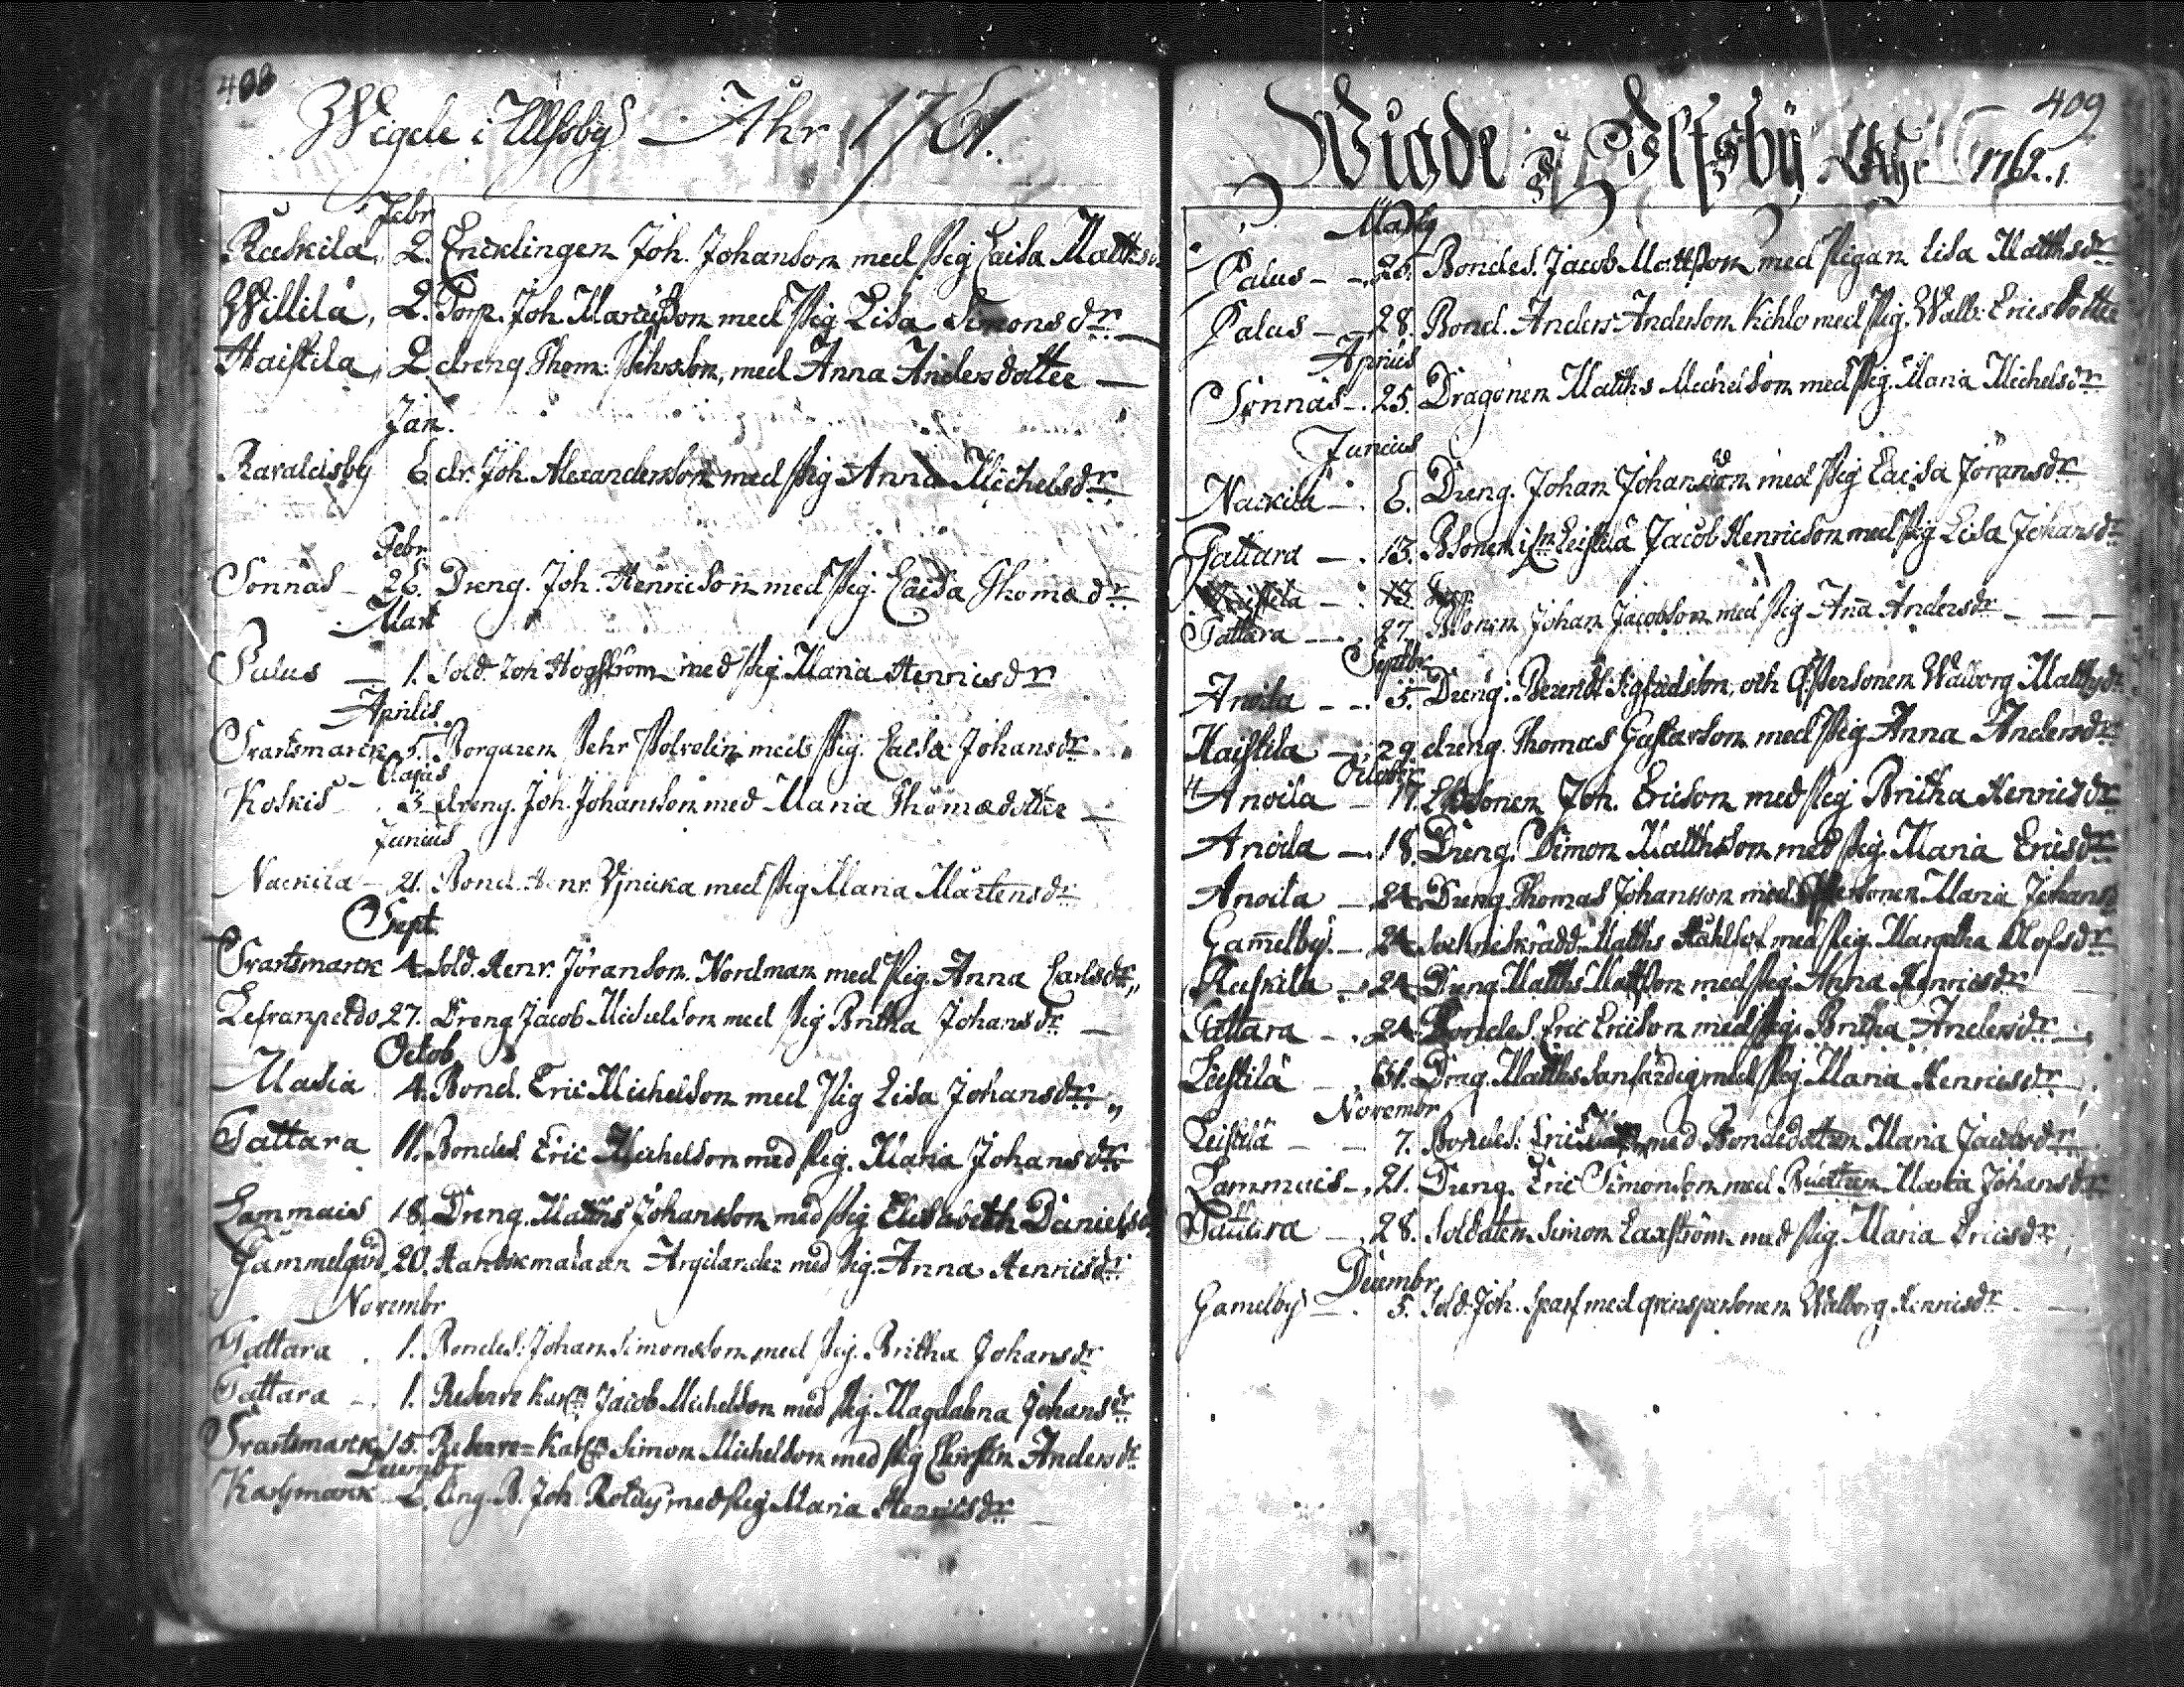 408
Wigde i Ulfsby Åhr 1761.
Febr
Ruskila, 2. Encklingen Joh. Johanson med Pig Caisa Matths
Willilä, 2. Torp. Joh. med Pig Lisa Simonsdr
Haistila, 2. dreng Thom: Pehrson, med Anna Andersdotter
Jan.
Ravaldsby 6 dr. Joh. Alexanderson med Pig Anna Michelsdr
Febr
Sonnäs - 26. Dreng. Joh. Henricson med Pig. Caisa Thomædr
Mart
Palus - 1. Sold. Joh Hogström med Pig. Maria Henricsdr
Aprilis
Svartsmarck 5. Borgaren Pehr Polvelin med Pig. Caisa Johansdr
Majus
Koskis - 3 dreng. Joh. Johansson med Maria Thomædotter
Junius
Nackila - 21. Bond. Henr. med Pig Maria Mårtensdr
Sept.
Svartsmarck 4. Sold. Henr. Jöranson Nordman med Pig. Anna Carlsdr
27. Dreng Jacob Michelson med Pig Britha Johansdr
Octob
Masia 4. Bond. Eric Michelson med Pig Lisa Johansdr
Tattara 11. Bondes. Eric Michelson med Pig. Maria Johansdr
Lammais 18. Dreng. Matths Johansson med Pig Elisabeth Danielsd
Gammelgård 20. Argilander med Pig. Anna Henricsdr
Novembr
Tattara 1. Bondes: Johan Simonsson med Pig. Britha Johansdr
Tattara 1. Reserve Karln Jacob Michelson med Pig. Magdalena Johansdr
Svartsmarck 15. Reserve-Karln Simon Michelson med Pig Chirstin Andersdr
Decembr
Karsmarck 6. Ung. B. Joh. med Pig Maria Henricsdr
409
Wigde i Ulfsby Åhr 1762.
Martij
Palus - 28. Bondes. Jacob Mattsson med Pigan Lisa Matthsdr
Palus - 28. Bond. Anders Anderson Kihlo med Pig. Walb: Ericsdotter
Aprilis
Sonnäs - 25. Dragonen Matths Michelson med Pig. Maria Michelsdr
Junius
Nackila - 6. Dreng. Johan Johanson med Pig Caisa Jöransdr
Tattara - 13. Bsonen ifrn Leistilä Jacob Henricson med Pig Lisa Johansdr
13.
Tattara - 27. Bsonen Johan Jacobson med Pig Aña Andersdr
Septbr
Anoila - 5. Dreng. Berendt Sigfredsson, och Qvpersonen Walborg Matthsdr
Haistila - 29. dreng. Thomas Gustavson med Pig Anna Andersdr
Octobr
Anoila - 17. Bsonen Joh. Ericson med Pig Britha Henricsdr
Anoila - 18. Dreng. Simon Matthson med Pig. Maria Ericsdr
Anoila - 24. Dreng Thomas Johansson med Qvpersonen Maria Johansd
Gam̄elby - 24. Sochneskrädd. Matths med Pig. Margetha Olofsdr
Ruskila - 24. Dreng Matths Mattson med Pig. Anna Henricsdr
Tattara - 24. Bondes Eric Ericson med Pig. Britha Andersdr
Leistilä - 31. Drag. Matths Sanfärdig med Pig. Maria Henricsdr
Novembr
Leistilä - 7. Bondes. Eric med Bondedottren Maria Jacobsdr
Lammais - 21. Dreng. Eric Simonson med Maria Johansdr
Tattara - 28. Soldaten Simon Laxström med Pig. Maria Ericsdr
Decembr
Gamelby - 5. Sold: Joh. Sparf med qvinspersonen Walborg Henricsdr